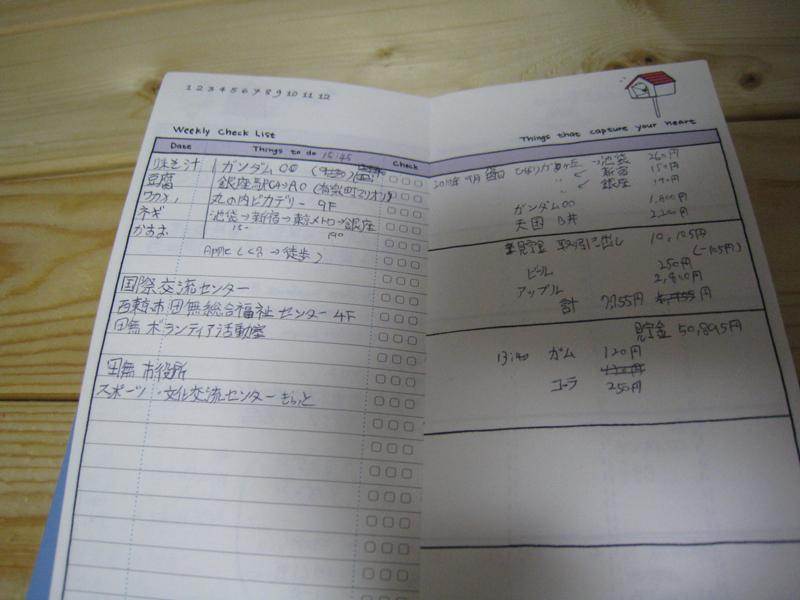 1 2 3 4 5 6 7 8 9 10 11 12
Weekly Check List
Date Things to do 15:45 Check
味そ汁 ガンダム00
豆腐 銀座駅 A0 (有楽町マリオン)
ワカメ 丸の内ピカデリー 9F
ネギ 池袋→新宿→東京メトロ→銀座
かつお 15- 190
Apple ( → 徒歩)
国際交流センター
西東京市田無総合福祉センター 4F
田無ボランティア活動室
田無市役所
スポーツ・文化交流センターきらっと
Things that capture your heart
2010年 9月 ひばりが丘→池袋 260円
〃 新宿 150円
〃 銀座 190円
ガンダム00 1,800円
天国 B丼 2,200円
貯金 取引引出し 10,105円
(-105円)
ビール 250円
アップル 2,800円
計 7,155円 円
貯金 50,895円
13:40 ガム 120円
コーラ 250円